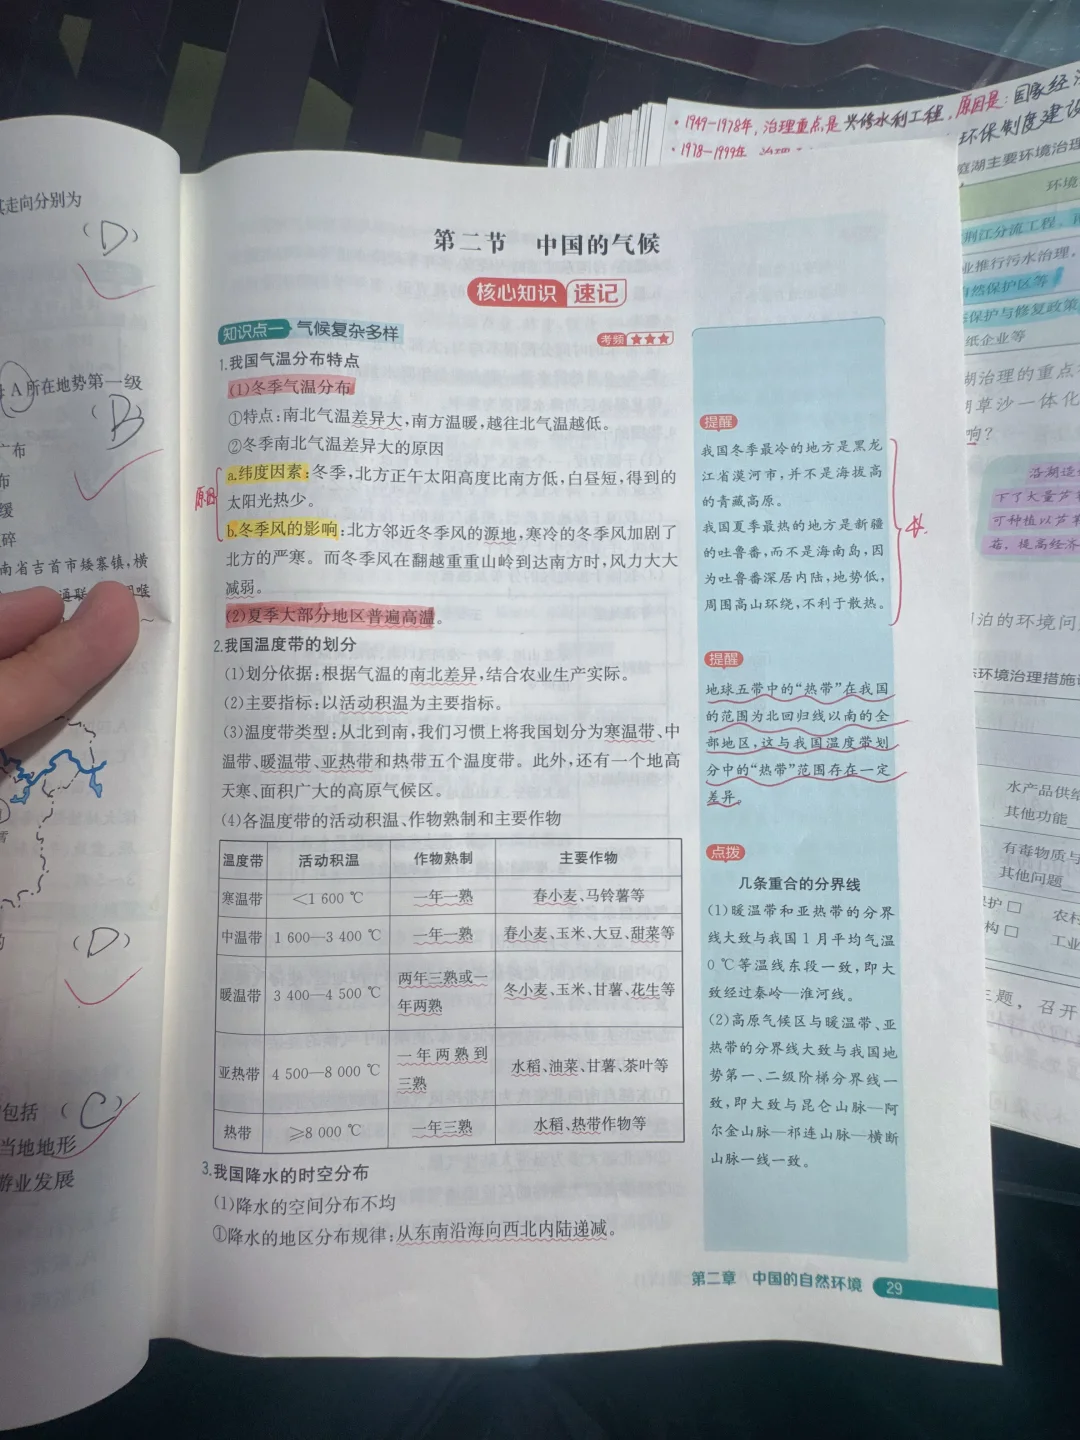 其走向分别为
(D)
A所在地势第一级
(B
广布
布
缓
碎
南省吉首市矮寨镇,横
(D)
包括 (C)
当地地形
游业发展
第二节 中国的气候
核心知识 速记
知识点一 气候复杂多样 考频 ★★★
1.我国气温分布特点
(1)冬季气温分布
①特点:南北气温差异大,南方温暖,越往北气温越低。
②冬季南北气温差异大的原因
原因
a.纬度因素:冬季,北方正午太阳高度比南方低,白昼短,得到的
太阳光热少。
b.冬季风的影响:北方邻近冬季风的源地,寒冷的冬季风加剧了
北方的严寒。而冬季风在翻越重重山岭到达南方时,风力大大
减弱。
(2)夏季大部分地区普遍高温。
2.我国温度带的划分
(1)划分依据:根据气温的南北差异,结合农业生产实际。
(2)主要指标:以活动积温为主要指标。
(3)温度带类型:从北到南,我们习惯上将我国划分为寒温带、中
温带、暖温带、亚热带和热带五个温度带。此外,还有一个地高
天寒、面积广大的高原气候区。
(4)各温度带的活动积温、作物熟制和主要作物
温度带 活动积温 作物熟制 主要作物
寒温带 <1 600 ℃ 一年一熟 春小麦、马铃薯等
中温带 1 600—3 400 ℃ 一年一熟 春小麦、玉米、大豆、甜菜等
暖温带 3 400—4 500 ℃ 两年三熟或一
年两熟 冬小麦、玉米、甘薯、花生等
亚热带 4 500—8 000 ℃ 一年两熟到
三熟 水稻、油菜、甘薯、茶叶等
热带 ≥8 000 ℃ 一年三熟 水稻、热带作物等
3.我国降水的时空分布
(1)降水的空间分布不均
①降水的地区分布规律:从东南沿海向西北内陆递减。
提醒
我国冬季最冷的地方是黑龙
江省漠河市,并不是海拔高
的青藏高原。
我国夏季最热的地方是新疆
的吐鲁番,而不是海南岛,因
为吐鲁番深居内陆,地势低,
周围高山环绕,不利于散热。
提醒
地球五带中的“热带”在我国
的范围为北回归线以南的全
部地区,这与我国温度带划
分中的“热带”范围存在一定
差异。
点拨
几条重合的分界线
(1)暖温带和亚热带的分界
线大致与我国1月平均气温
0 ℃等温线东段一致,即大
致经过秦岭—淮河线。
(2)高原气候区与暖温带、亚
热带的分界线大致与我国地
势第一、二级阶梯分界线一
致,即大致与昆仑山脉—阿
尔金山脉—祁连山脉—横断
山脉一线一致。
第二章 中国的自然环境 29
·1949-1978年,治理重点是兴修水利工程,原因是:国家经济
·1978-1999年
环保制度建设
庭湖主要环境治理
环境
荆江分流工程、
业推行污水治理,
自然保护区等
保护与修复政策
纸企业等
湖治理的重点
湖草沙一体化
响?
沿湖造
下了大量芦
可种植以芦
菇,提高经济
泊的环境问
环境治理措施
水产品供给
其他功能
有毒物质与
其他问题
护□ 农村
构□ 工业
主题,召开